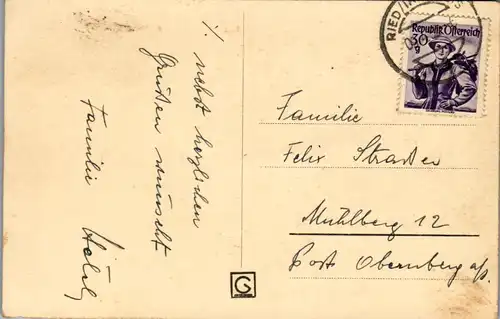 ./. nebst herzlichen
Grüßen wünscht
Familie
RIED/
Republik Österreich
30
g
Familie
Felix Straßer
Mühlberg 12
Post Obernberg a/J.
G